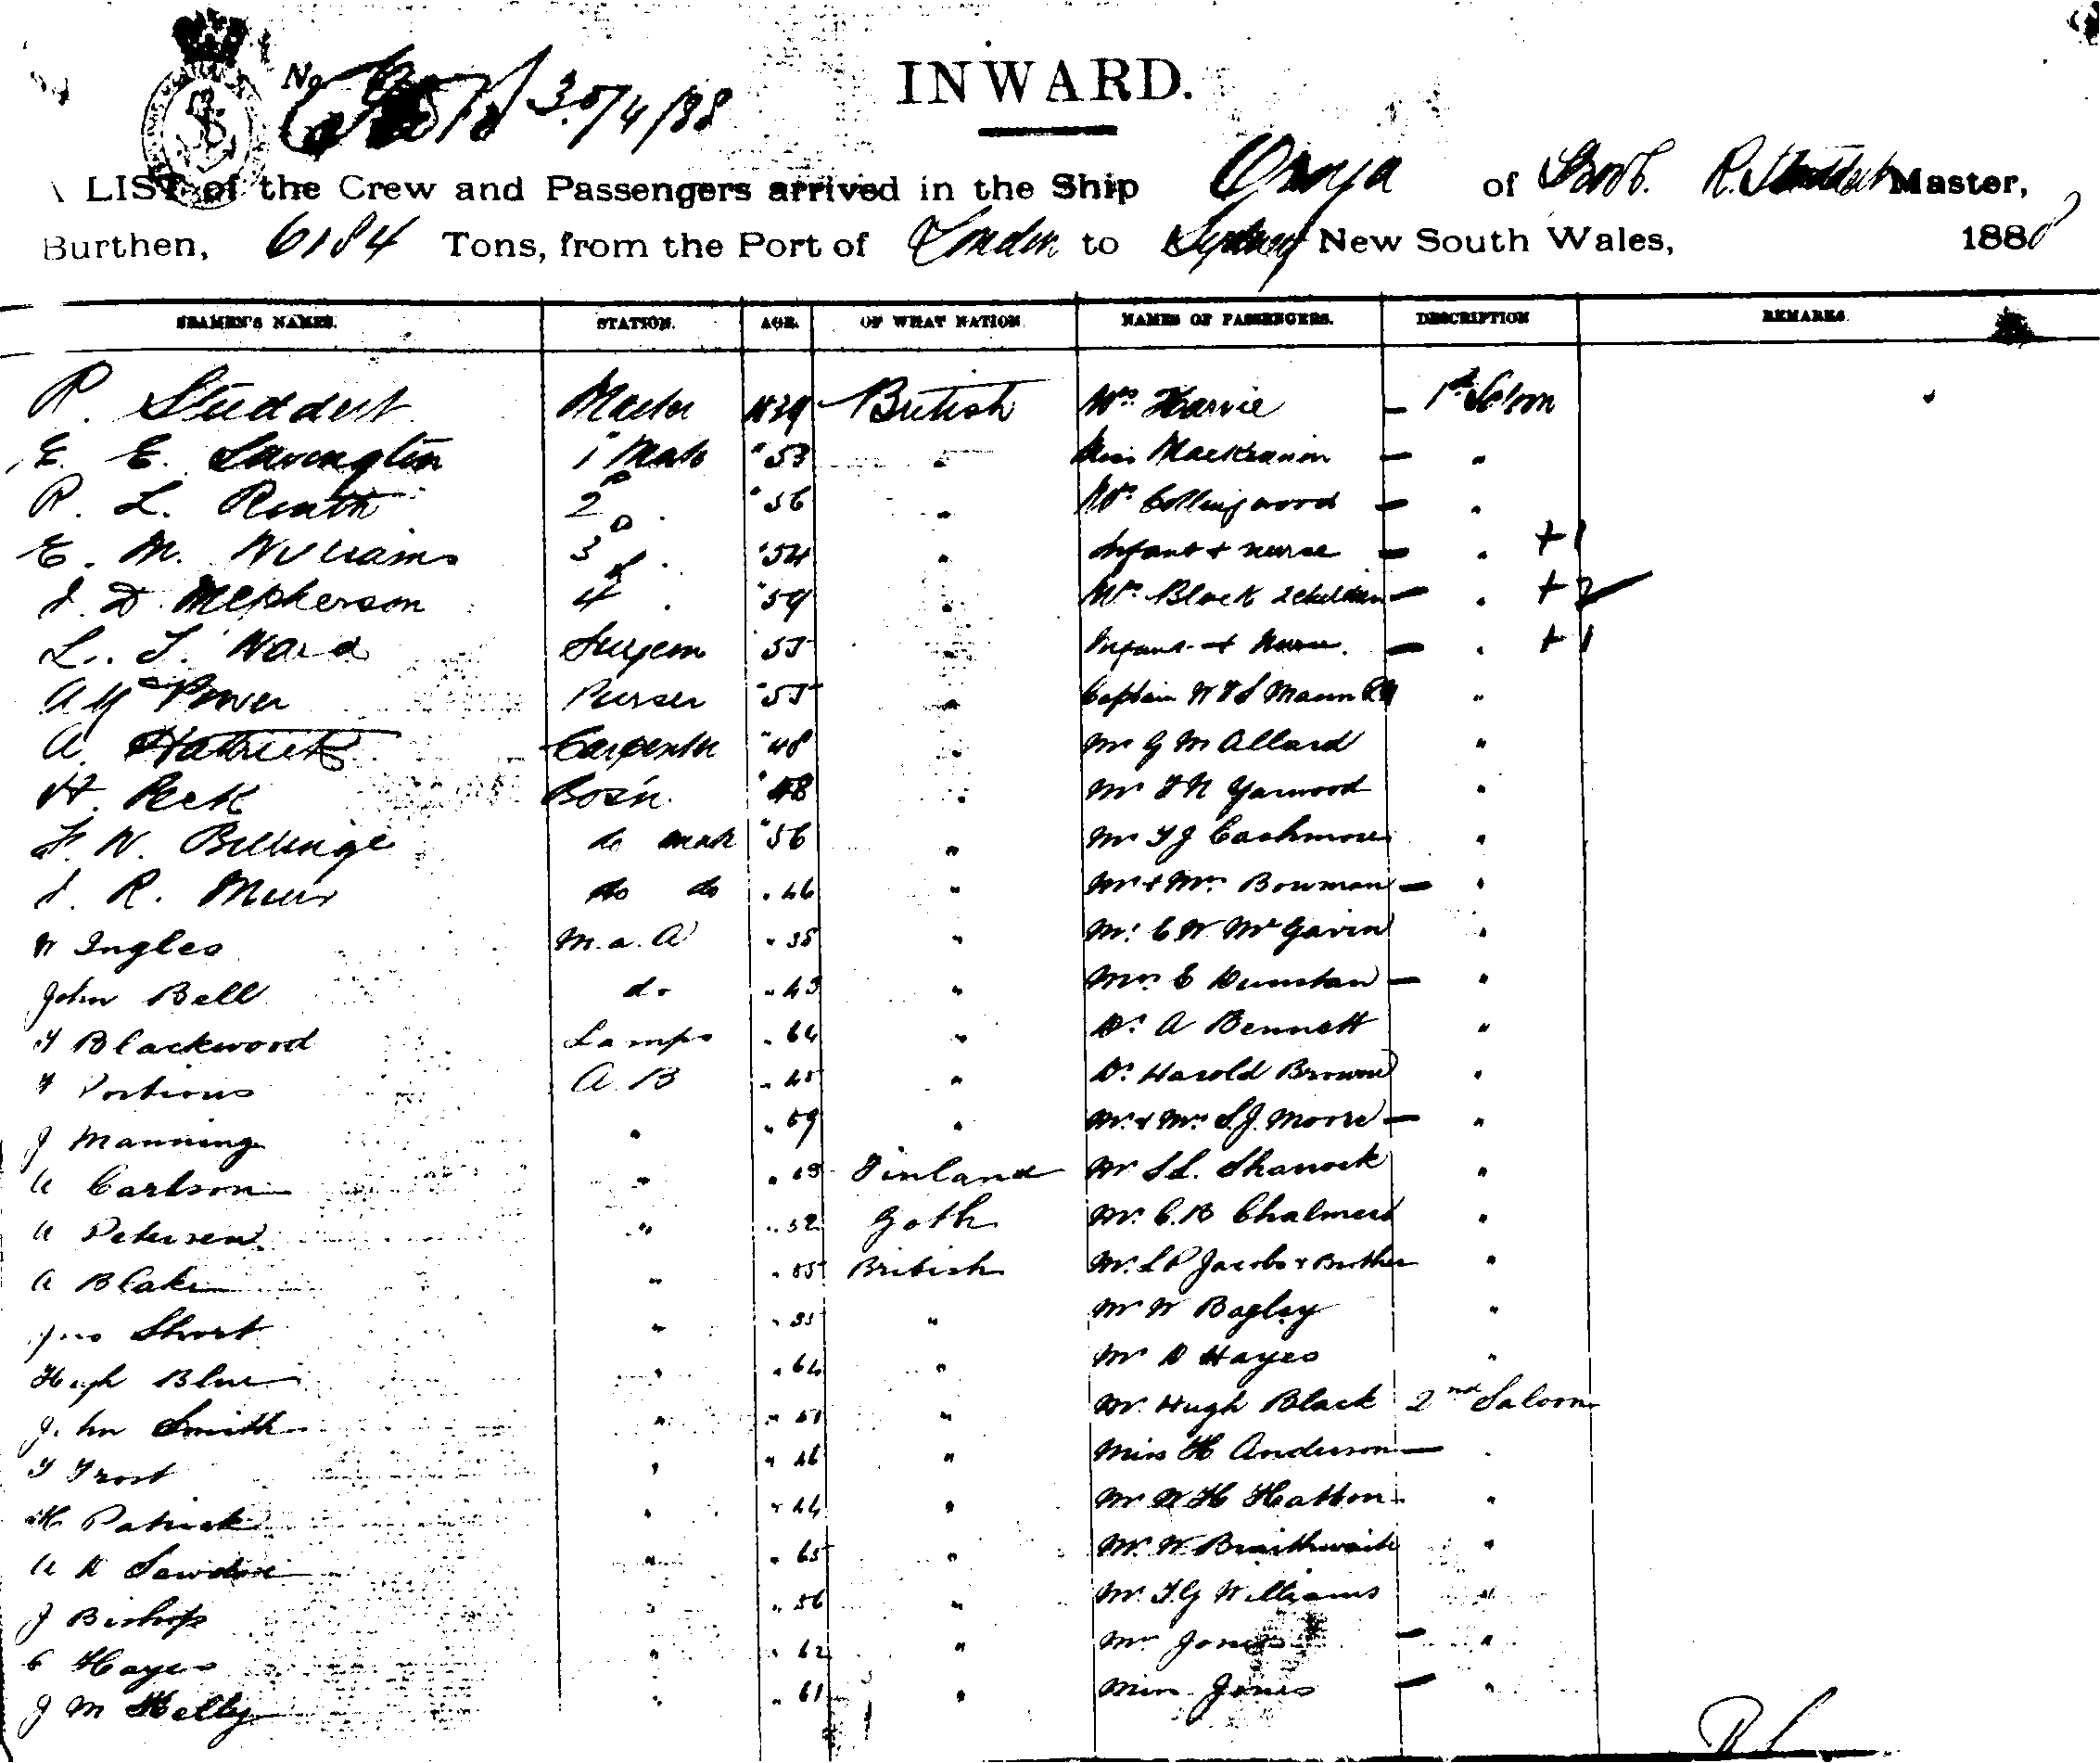 INWARD.
No 30/4/88
LIST of the Crew and Passengers arrived in the Ship Oroya of R. Studdert Master,
Burthen, 6184 Tons, from the Port of London to Sydney New South Wales, 1888
SEAMEN'S NAMES. STATION. AGE. OF WHAT NATION NAMES OF PASSENGERS. DESCRIPTION REMARKS
R. Studdert Master 1839 British Mrs Harvie — 1st Saloon
E. E. Lavington 1 Mate " 53 " Miss MacKinnon — "
R. L. Routh 2 Do " 56 " Mrs Collingwood — "
E. M. Williams 3 Do " 54 " Infant & nurse — " +1
J. D. McPherson 4 " 59 " Mrs Black 2 children — " +2
L. J. Ward Surgeon " 55 " Infant & Nurse. — " +1
Power Purser " 55 " Captain Mann RN "
A. Hattrick Carpenter " 48 " Mr G M Allard "
H. Peck Bosn. " 48 " Mr F N Yarwood "
F. W. Billinge do mate " 56 " Mr Cashmore "
J. R. Muir do do " 46 " Mr & Mrs Bowman — "
W Ingles M.a.A " 38 " Mr C W McGavin "
John Bell do " 43 " Mrs E Dunstan — "
Blackwood Lamps " 64 " Dr A Bennett "
Portious A B " 45 " Dr Harold Browne "
J Manning " " 59 " Mr & Mrs S.J. Moore — "
A Carlson " " 63 Finland Mr S L. Shanock "
A Petersen " " 52 Goth Mr C. B Chalmers "
A Blake " " 55 British Mr L P Jacobs & Brother "
Jno Short " " 35 " Mr W Bagley "
Hugh Blue " " 64 " Mr D Hayes "
John Smith " " 51 " Mr Hugh Black 2nd Saloon
T Frost " " 46 " Miss H Anderson — "
H Patrick " " 44 " Mr W H Hatton "
A " " 65 " Mr W Braithwaite "
J Bishop " " 56 " Mr T G Williams "
C Hayes " " 62 " Mr Jones — "
J M Kelly " " 61 " Miss Jones — "